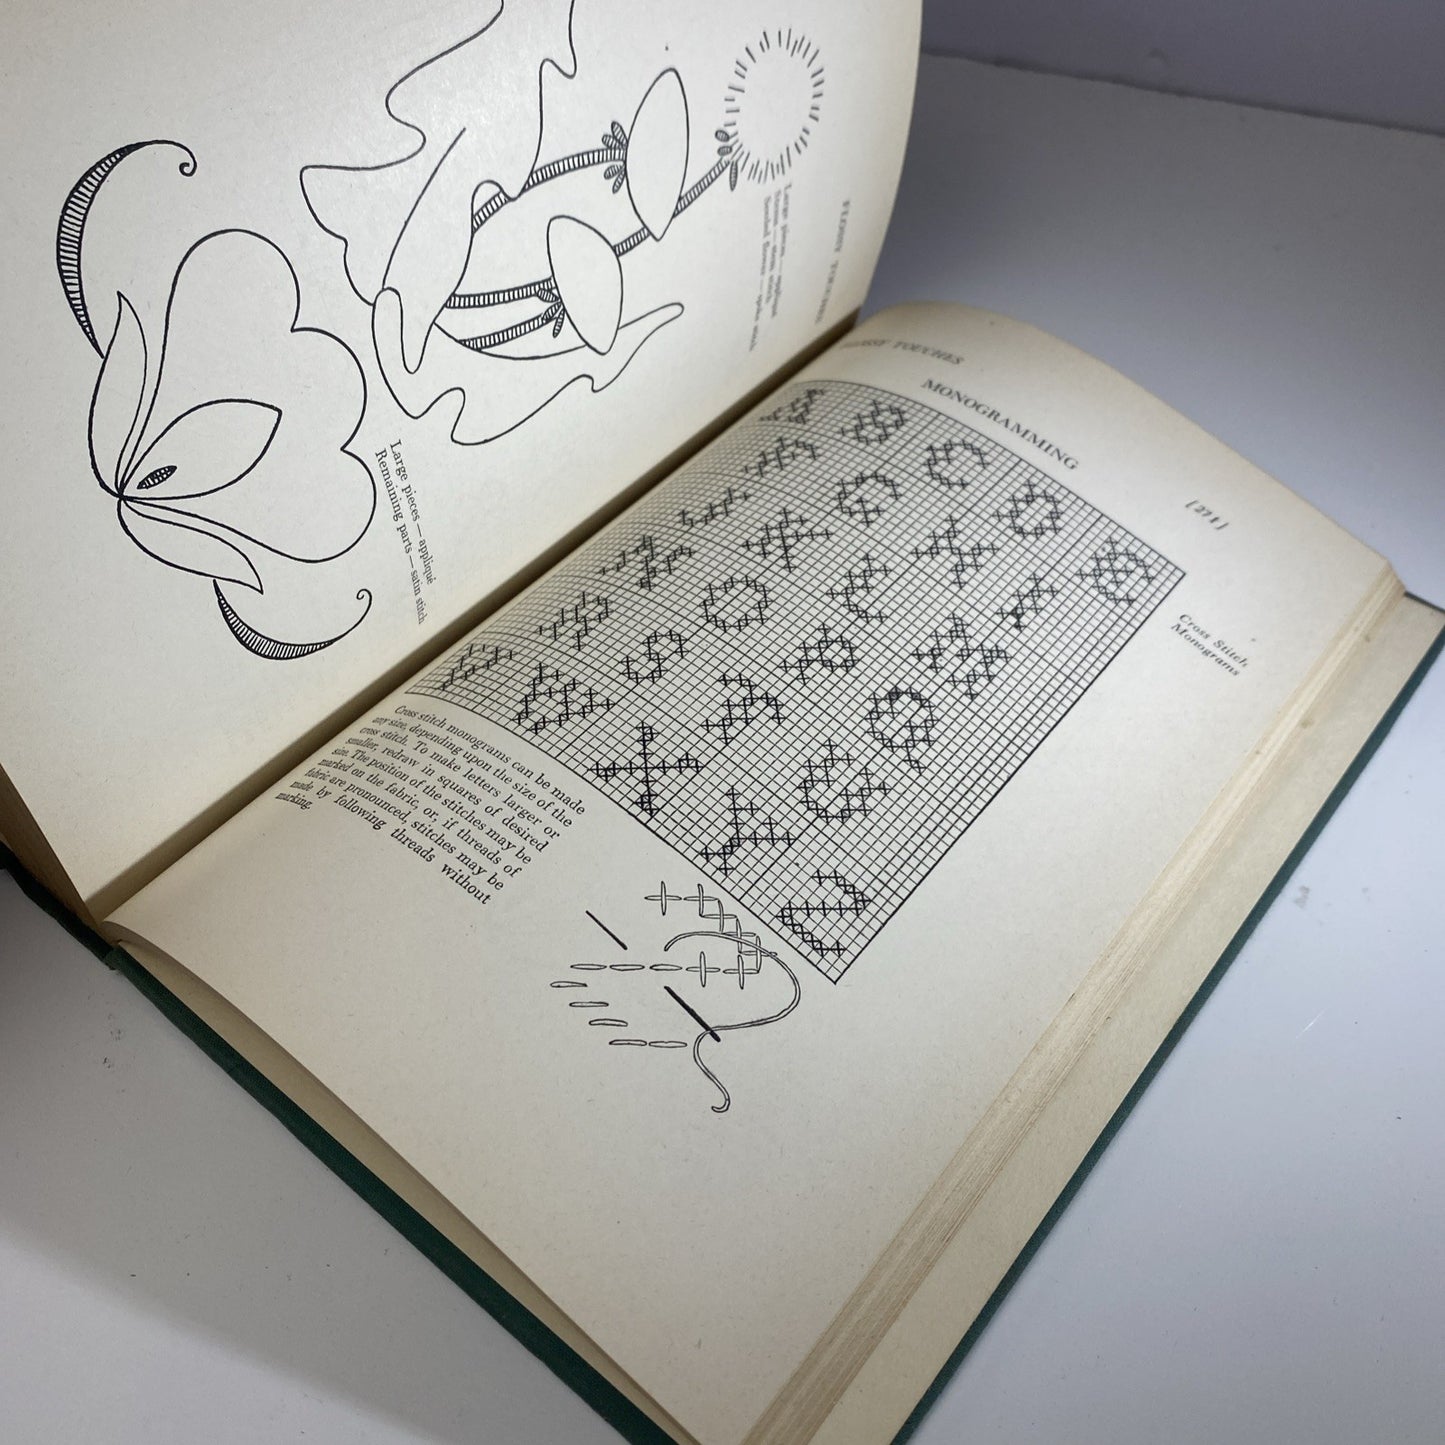 FLOSSY TOUCHES
Large pieces — appliqué
stitch
Large pieces — appliqué
Remaining parts — satin stitch
TOUCHES
MONOGRAMMING
[271]
Cross Stitch
Monograms
Cross stitch monograms can be made
any size, depending upon the size of the
cross stitch. To make letters larger or
smaller, redraw in squares of desired
size. The position of the stitches may be
marked on the fabric, or, if threads of
fabric are pronounced, stitches may be
made by following threads without
marking.